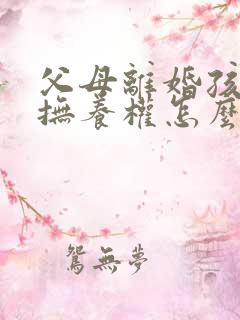 父母離婚孩
撫養權怎麼
鴛無夢